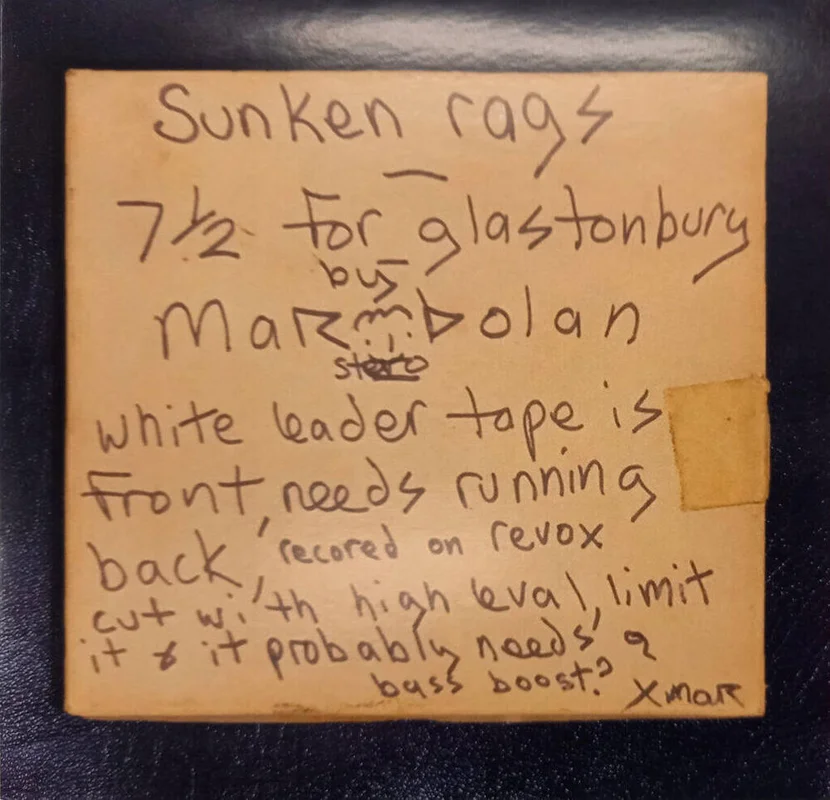 Sunken rags
—
7 1/2 for glastonbury
by
Mar Bolan
stero
white leader tape is
front, needs running
back, recored on revox
cut with high leval, limit
it & it probably needs a
bass boost? X mar